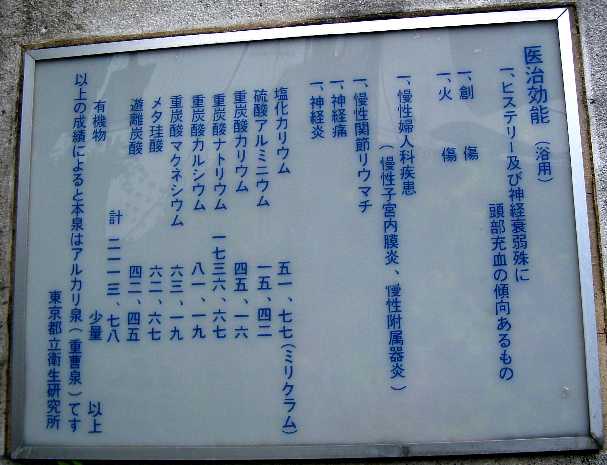 医治効能（浴用）
一、ヒステリー及び神経衰弱殊に
頭部充血の傾向あるもの
一、創傷
一、火傷
一、慢性婦人科疾患
（慢性子宮内膜炎、慢性附属器炎）
一、慢性関節リウマチ
一、神経痛
一、神経炎
塩化カリウム 五一、七七（ミリクラム）
硫酸アルミニウム 一五、四二
重炭酸カリウム 四五、一六
重炭酸ナトリウム 一七三六、六七
重炭酸カルシウム 八一、一九
重炭酸マクネシウム 六三、一九
メタ珪酸 六二、六七
遊離炭酸 四二、四五
計 二一一三、七八
有機物 少量 以上
以上の成績によると本泉はアルカリ泉（重曹泉）てす
東京都立衛生研究所